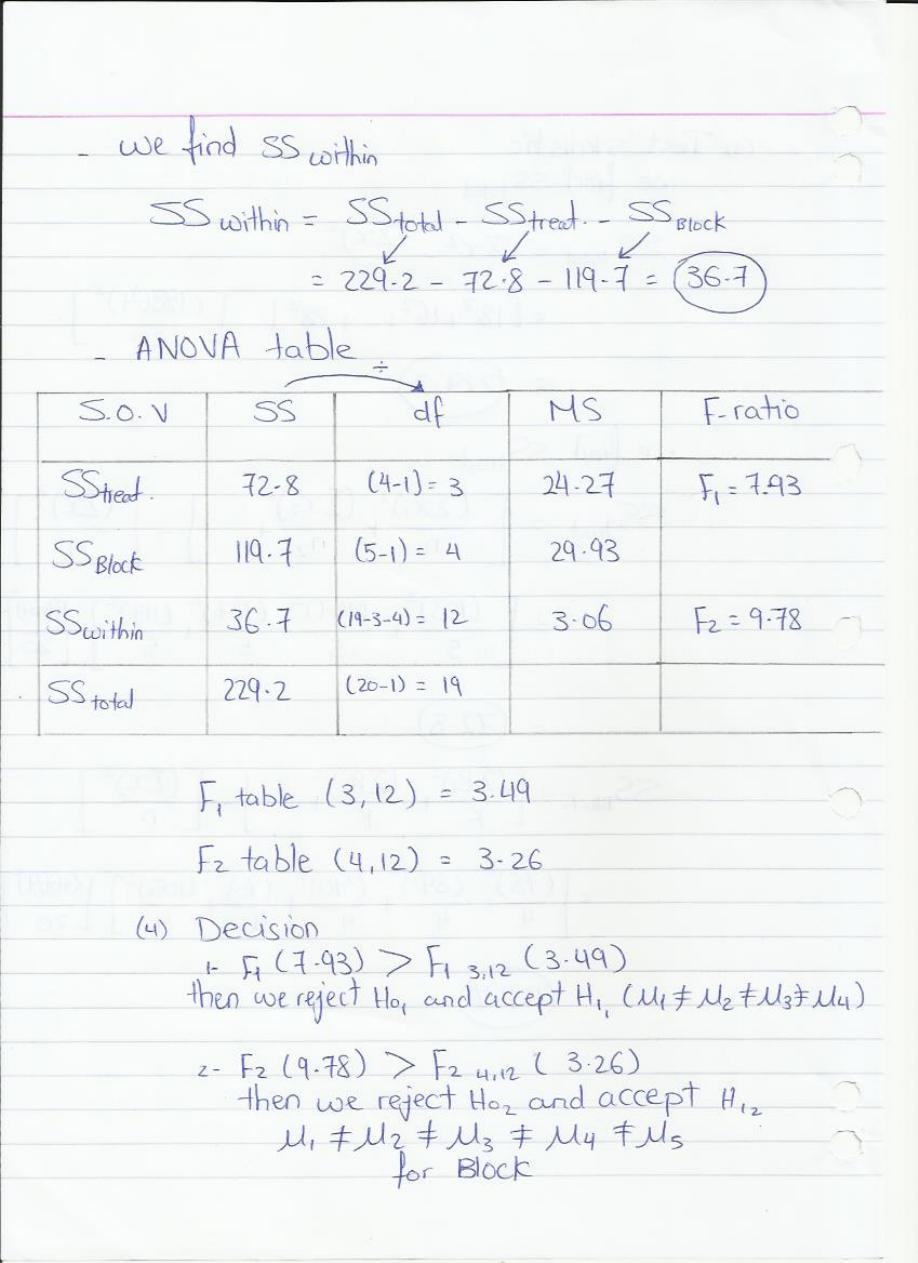 - we find SS within
SS within = SS total - SS treat. - SS Block
= 229.2 - 72.8 - 119.7 = 36.7
- ANOVA table
÷
S.O.V SS df MS F-ratio
SS treat. 72.8 (4-1) = 3 24.27 F1 = 7.93
SS Block 119.7 (5-1) = 4 29.93
SS within 36.7 (19-3-4) = 12 3.06 F2 = 9.78
SS total 229.2 (20-1) = 19
F1 table (3,12) = 3.49
F2 table (4,12) = 3.26
(4) Decision
1- F1 (7.93) > F1 3,12 (3.49)
then we reject H01 and accept H11 (μ1 ≠ μ2 ≠ μ3 ≠ μ4)
2- F2 (9.78) > F2 4,12 (3.26)
then we reject H02 and accept H12
μ1 ≠ μ2 ≠ μ3 ≠ μ4 ≠ μ5
for Block